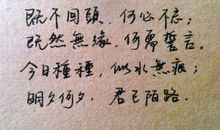 既不回頭，何必不忘；
既然無緣，何需誓言。
今日種種，似水無痕；
明夕何夕，君已陌路。